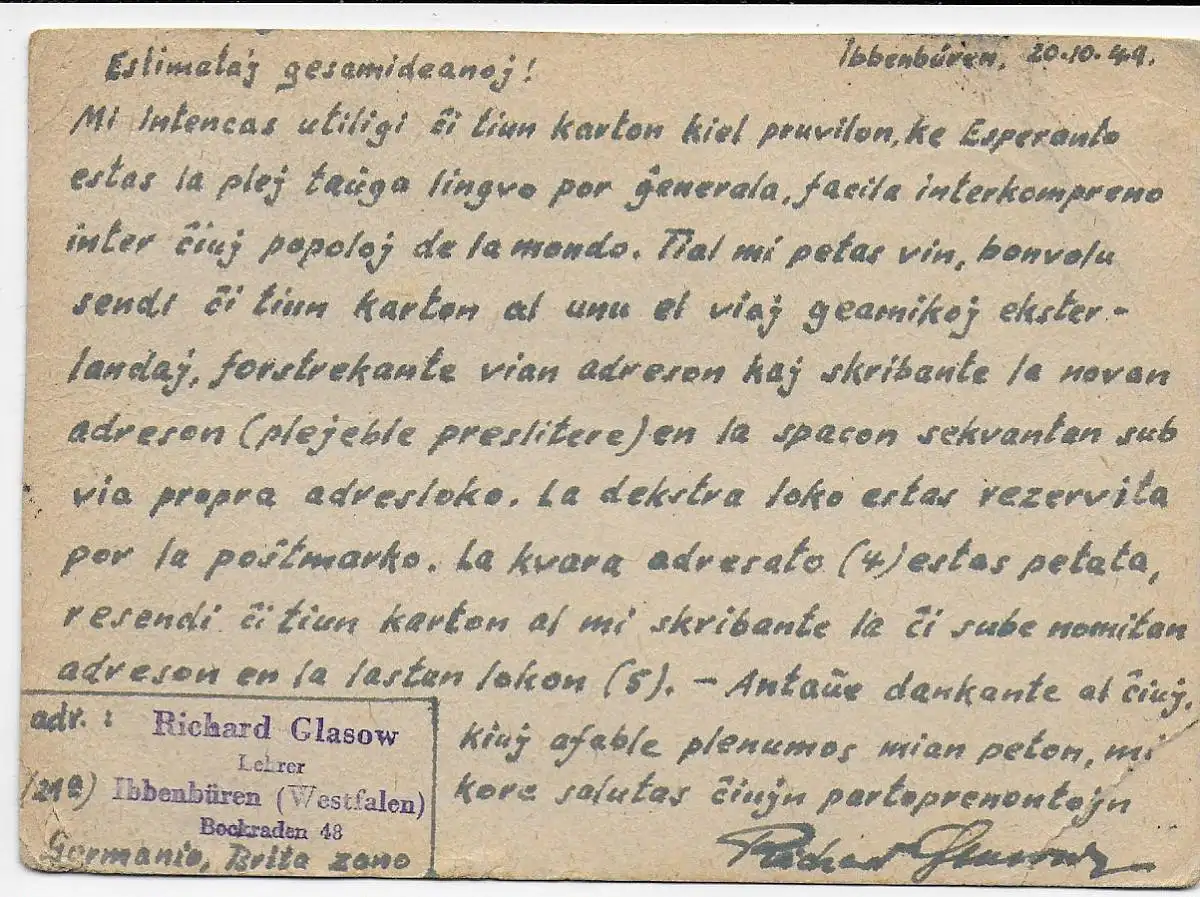 Ibbenbüren, 20.10.49.
Estimataj gesamideanoj!
Mi intencas utiligi ĉi tiun karton kiel pruvilon, ke Esperanto
estas la plej taŭga lingvo por ĝenerala, facila interkompreno
inter ĉiuj popoloj de la mondo. Tial mi petas vin, bonvolu
sendi ĉi tiun karton al unu el viaj geamikoj ekster-
landaj, forstrekante vian adreson kaj skribante la novan
adreson (plejeble preslitere) en la spacon sekvantan sub
via propra adresloko. La dekstra loko estas rezervita
por la poŝtmarko. La kvara adresato (4) estas petata,
resendi ĉi tiun karton al mi skribante la ĉi sube nomitan
adreson en la lastan lokon (5). – Antaŭe dankante al ĉiuj,
kiuj afable plenumos mian peton, mi
kore salutas ĉiujn partoprenontojn
Richard Glasow
adr.: Richard Glasow
Lehrer
Ibbenbüren (Westfalen)
Bockraden 48
Germanio, Brita zono